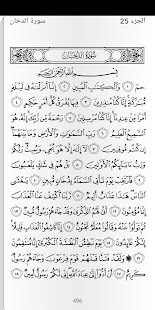 الجزء 25
سورة الدخان
سُورَةُ الدُّخَانِ
بِسْمِ اللَّهِ الرَّحْمَٰنِ الرَّحِيمِ
حمٓ ١ وَالْكِتَابِ الْمُبِينِ ٢ إِنَّا أَنزَلْنَاهُ فِي لَيْلَةٍ مُّبَارَكَةٍ إِنَّا
كُنَّا مُنذِرِينَ ٣ فِيهَا يُفْرَقُ كُلُّ أَمْرٍ حَكِيمٍ ٤ أَمْرًا مِّنْ
عِندِنَا إِنَّا كُنَّا مُرْسِلِينَ ٥ رَحْمَةً مِّن رَّبِّكَ إِنَّهُ هُوَ
السَّمِيعُ الْعَلِيمُ ٦ رَبِّ السَّمَاوَاتِ وَالْأَرْضِ وَمَا بَيْنَهُمَا إِن
كُنتُم مُّوقِنِينَ ٧ لَا إِلَٰهَ إِلَّا هُوَ يُحْيِي وَيُمِيتُ رَبُّكُمْ وَرَبُّ
آبَائِكُمُ الْأَوَّلِينَ ٨ بَلْ هُمْ فِي شَكٍّ يَلْعَبُونَ ٩
فَارْتَقِبْ يَوْمَ تَأْتِي السَّمَاءُ بِدُخَانٍ مُّبِينٍ ١٠ يَغْشَى
النَّاسَ هَٰذَا عَذَابٌ أَلِيمٌ ١١ رَّبَّنَا اكْشِفْ عَنَّا الْعَذَابَ إِنَّا
مُؤْمِنُونَ ١٢ أَنَّىٰ لَهُمُ الذِّكْرَىٰ وَقَدْ جَاءَهُمْ رَسُولٌ مُّبِينٌ
١٣ ثُمَّ تَوَلَّوْا عَنْهُ وَقَالُوا مُعَلَّمٌ مَّجْنُونٌ ١٤ إِنَّا كَاشِفُو الْعَذَابِ
قَلِيلًا إِنَّكُمْ عَائِدُونَ ١٥ يَوْمَ نَبْطِشُ الْبَطْشَةَ الْكُبْرَىٰ إِنَّا مُنتَقِمُونَ
١٦ ۞ وَلَقَدْ فَتَنَّا قَبْلَهُمْ قَوْمَ فِرْعَوْنَ وَجَاءَهُمْ رَسُولٌ
كَرِيمٌ ١٧ أَنْ أَدُّوا إِلَيَّ عِبَادَ اللَّهِ إِنِّي لَكُمْ رَسُولٌ أَمِينٌ ١٨
496